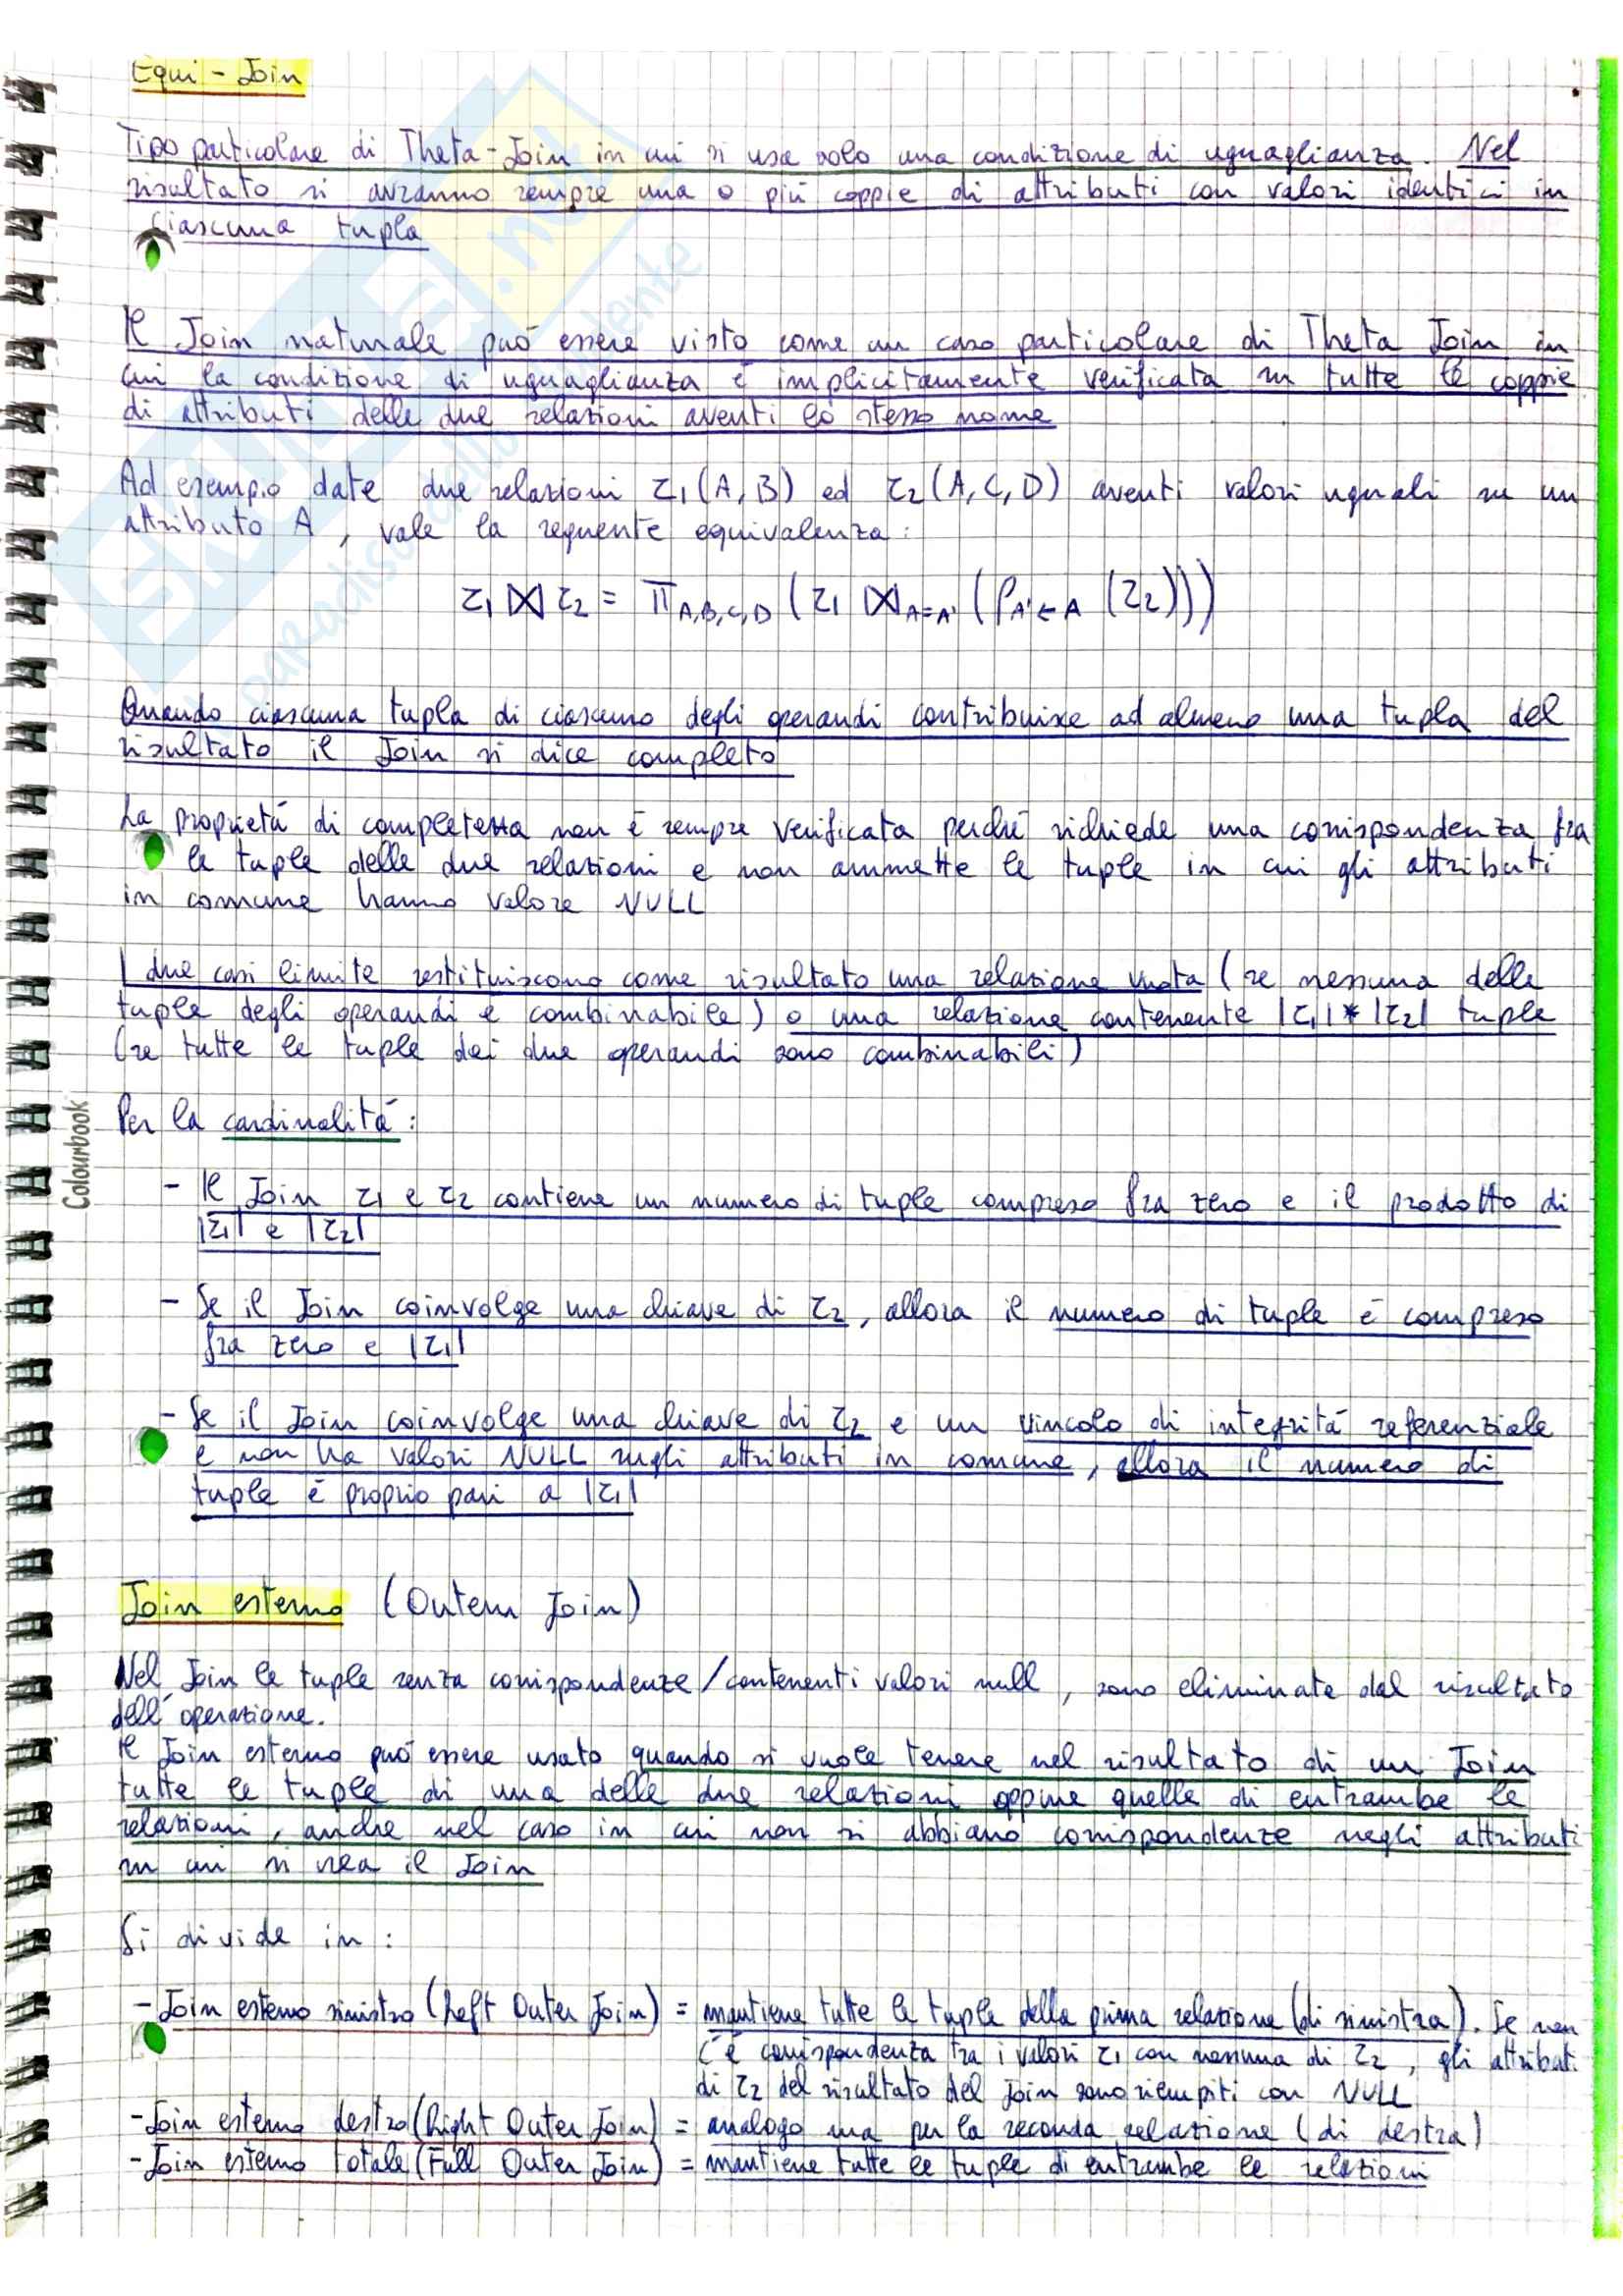 Equi-Join
Tipo particolare di Theta-Join in cui si usa solo una condizione di uguaglianza. Nel
risultato si avranno sempre una o più coppie di attributi con valori identici in
ciascuna tupla
Il Join naturale può essere visto come un caso particolare di Theta Join in
cui la condizione di uguaglianza è implicitamente verificata su tutte le coppie
di attributi delle due relazioni aventi lo stesso nome
Ad esempio date due relazioni r1(A,B) ed r2(A,C,D) aventi valori uguali su un
attributo A, vale la seguente equivalenza:
r1 ⋈ r2 = π A,B,C,D (r1 ⋈ A=A' (ρ A'←A (r2)))
Quando ciascuna tupla di ciascuno degli operandi contribuisce ad almeno una tupla del
risultato il Join si dice completo
La proprietà di completezza non è sempre verificata perché richiede una corrispondenza fra
le tuple delle due relazioni e non ammette le tuple in cui gli attributi
in comune hanno valore NULL
I due casi limite restituiscono come risultato una relazione vuota (se nessuna delle
tuple degli operandi è combinabile) o una relazione contenente |r1| * |r2| tuple
(se tutte le tuple dei due operandi sono combinabili)
Per la cardinalità:
- Il Join r1 e r2 contiene un numero di tuple compreso fra zero e il prodotto di
|r1| e |r2|
- Se il Join coinvolge una chiave di r2, allora il numero di tuple è compreso
fra zero e |r1|
- Se il Join coinvolge una chiave di r2 e un vincolo di integrità referenziale
e non ha valori NULL sugli attributi in comune, allora il numero di
tuple è proprio pari a |r1|
Join esterno (Outer Join)
Nel Join le tuple senza corrispondenze/contenenti valori null, sono eliminate dal risultato
dell'operazione.
Il Join esterno può essere usato quando si vuole tenere nel risultato di un Join
tutte le tuple di una delle due relazioni oppure quelle di entrambe le
relazioni, anche nel caso in cui non si abbiano corrispondenze negli attributi
su cui si crea il Join
Si divide in:
- Join esterno sinistro (Left Outer Join) = mantiene tutte le tuple della prima relazione (di sinistra). Se non
c'è corrispondenza tra i valori r1 con nessuna di r2, gli attributi
di r2 del risultato del Join sono riempiti con NULL
- Join esterno destro (Right Outer Join) = analogo ma per la seconda relazione (di destra)
- Join esterno totale (Full Outer Join) = mantiene tutte le tuple di entrambe le relazioni
Colourbook